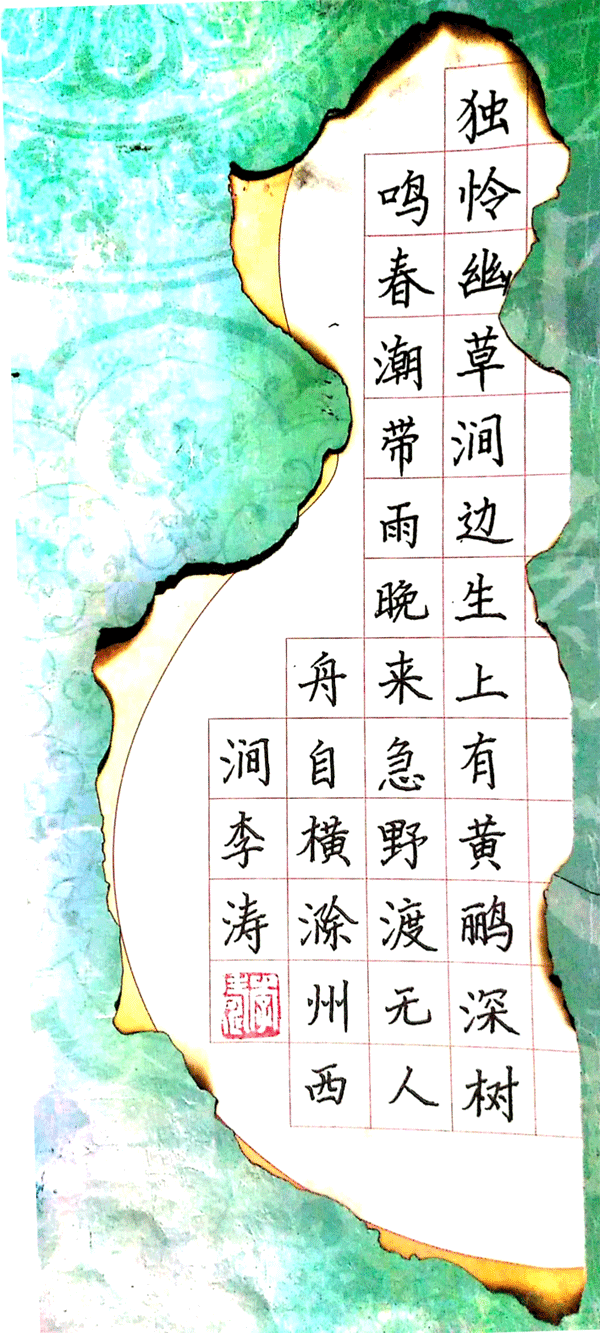 独怜幽草涧边生上有黄鹂深树
鸣春潮带雨晚来急野渡无人
舟自横滁州西
涧李涛